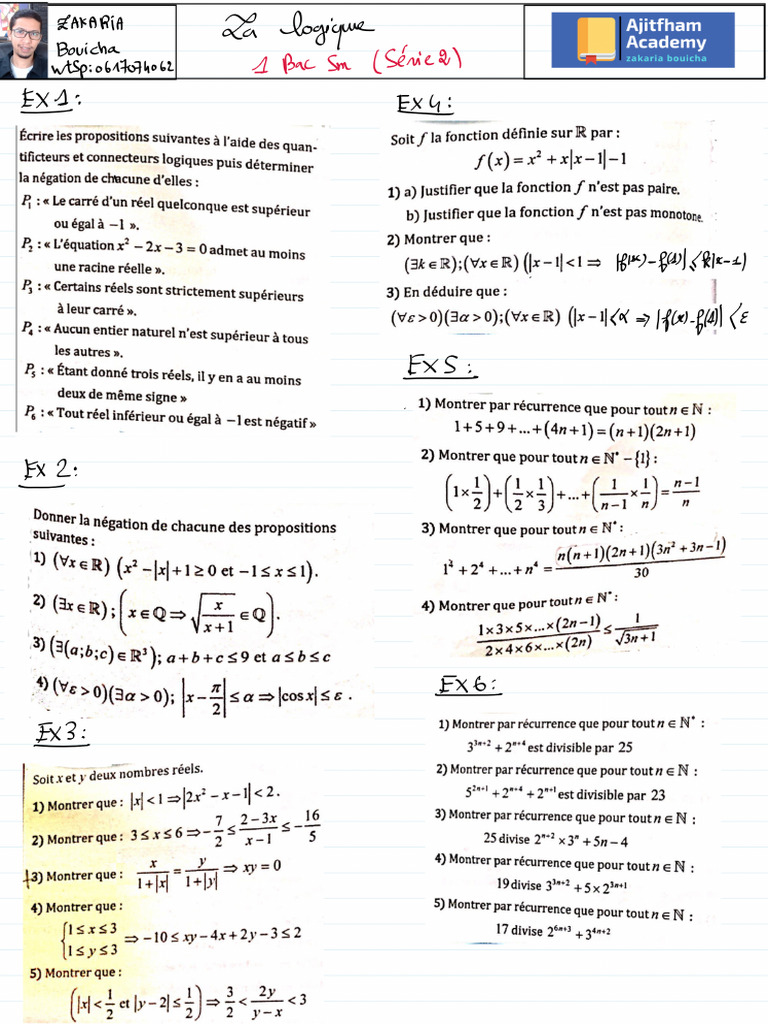 ZAKARIA
Bouicha
wtsp:0617074062
La logique
1 Bac Sm (Série2)
Ajitfham
Academy
zakaria bouicha
EX1:
Écrire les propositions suivantes à l'aide des quan-
tificteurs et connecteurs logiques puis déterminer
la négation de chacune d'elles :
P₁ : « Le carré d'un réel quelconque est supérieur
ou égal à −1 ».
P₂ : « L'équation x² − 2x − 3 = 0 admet au moins
une racine réelle ».
P₃ : « Certains réels sont strictement supérieurs
à leur carré ».
P₄ : « Aucun entier naturel n'est supérieur à tous
les autres ».
P₅ : « Étant donné trois réels, il y en a au moins
deux de même signe »
P₆ : « Tout réel inférieur ou égal à −1 est négatif »
EX 2:
Donner la négation de chacune des propositions
suivantes :
1) (∀x ∈ ℝ) (x² − |x| + 1 ≥ 0 et −1 ≤ x ≤ 1).
2) (∃x ∈ ℝ) ; (x ∈ ℚ ⇒ √(x/(x+1)) ∈ ℚ).
3) (∃(a;b;c) ∈ ℝ³) ; a + b + c ≤ 9 et a ≤ b ≤ c
4) (∀ε > 0)(∃α > 0); |x − π/2| ≤ α ⇒ |cos x| ≤ ε .
EX3:
Soit x et y deux nombres réels.
1) Montrer que : |x| < 1 ⇒ |2x² − x − 1| < 2 .
2) Montrer que : 3 ≤ x ≤ 6 ⇒ −7/2 ≤ (2−3x)/(x−1) ≤ −16/5
3) Montrer que : x/(1+|x|) = y/(1+|y|) ⇒ xy = 0
4) Montrer que :
{1 ≤ x ≤ 3
{1 ≤ y ≤ 3 ⇒ −10 ≤ xy − 4x + 2y − 3 ≤ 2
5) Montrer que :
(|x| < 1/2 et |y − 2| ≤ 1/2) ⇒ 3/2 < 2y/(y−x) < 3
EX4:
Soit f la fonction définie sur ℝ par :
f(x) = x² + x|x−1| − 1
1) a) Justifier que la fonction f n'est pas paire.
b) Justifier que la fonction f n'est pas monotone.
2) Montrer que :
(∃k ∈ ℝ);(∀x ∈ ℝ) (|x−1| < 1 ⇒ |f(x)−f(1)| ≤ k|x−1)
3) En déduire que :
(∀ε > 0)(∃α > 0);(∀x ∈ ℝ) (|x−1| < α ⇒ |f(x)−f(1)| < ε
EX5:
1) Montrer par récurrence que pour tout n ∈ ℕ :
1 + 5 + 9 + ... + (4n+1) = (n+1)(2n+1)
2) Montrer que pour tout n ∈ ℕ* − {1} :
(1×1/2) + (1/2×1/3) + ... + (1/(n−1)×1/n) = (n−1)/n
3) Montrer que pour tout n ∈ ℕ* :
1⁴ + 2⁴ + ... + n⁴ = n(n+1)(2n+1)(3n²+3n−1)/30
4) Montrer que pour tout n ∈ ℕ* :
(1×3×5×...×(2n−1))/(2×4×6×...×(2n)) ≤ 1/√(3n+1)
EX6:
1) Montrer par récurrence que pour tout n ∈ ℕ* :
3³ⁿ⁺² + 2ⁿ⁺⁴ est divisible par 25
2) Montrer par récurrence que pour tout n ∈ ℕ :
5²ⁿ⁺¹ + 2ⁿ⁺⁴ + 2ⁿ⁺¹ est divisible par 23
3) Montrer par récurrence que pour tout n ∈ ℕ :
25 divise 2ⁿ⁺² × 3ⁿ + 5n − 4
4) Montrer par récurrence que pour tout n ∈ ℕ :
19 divise 3³ⁿ⁺² + 5 × 2³ⁿ⁺¹
5) Montrer par récurrence que pour tout n ∈ ℕ :
17 divise 2⁶ⁿ⁺³ + 3⁴ⁿ⁺²